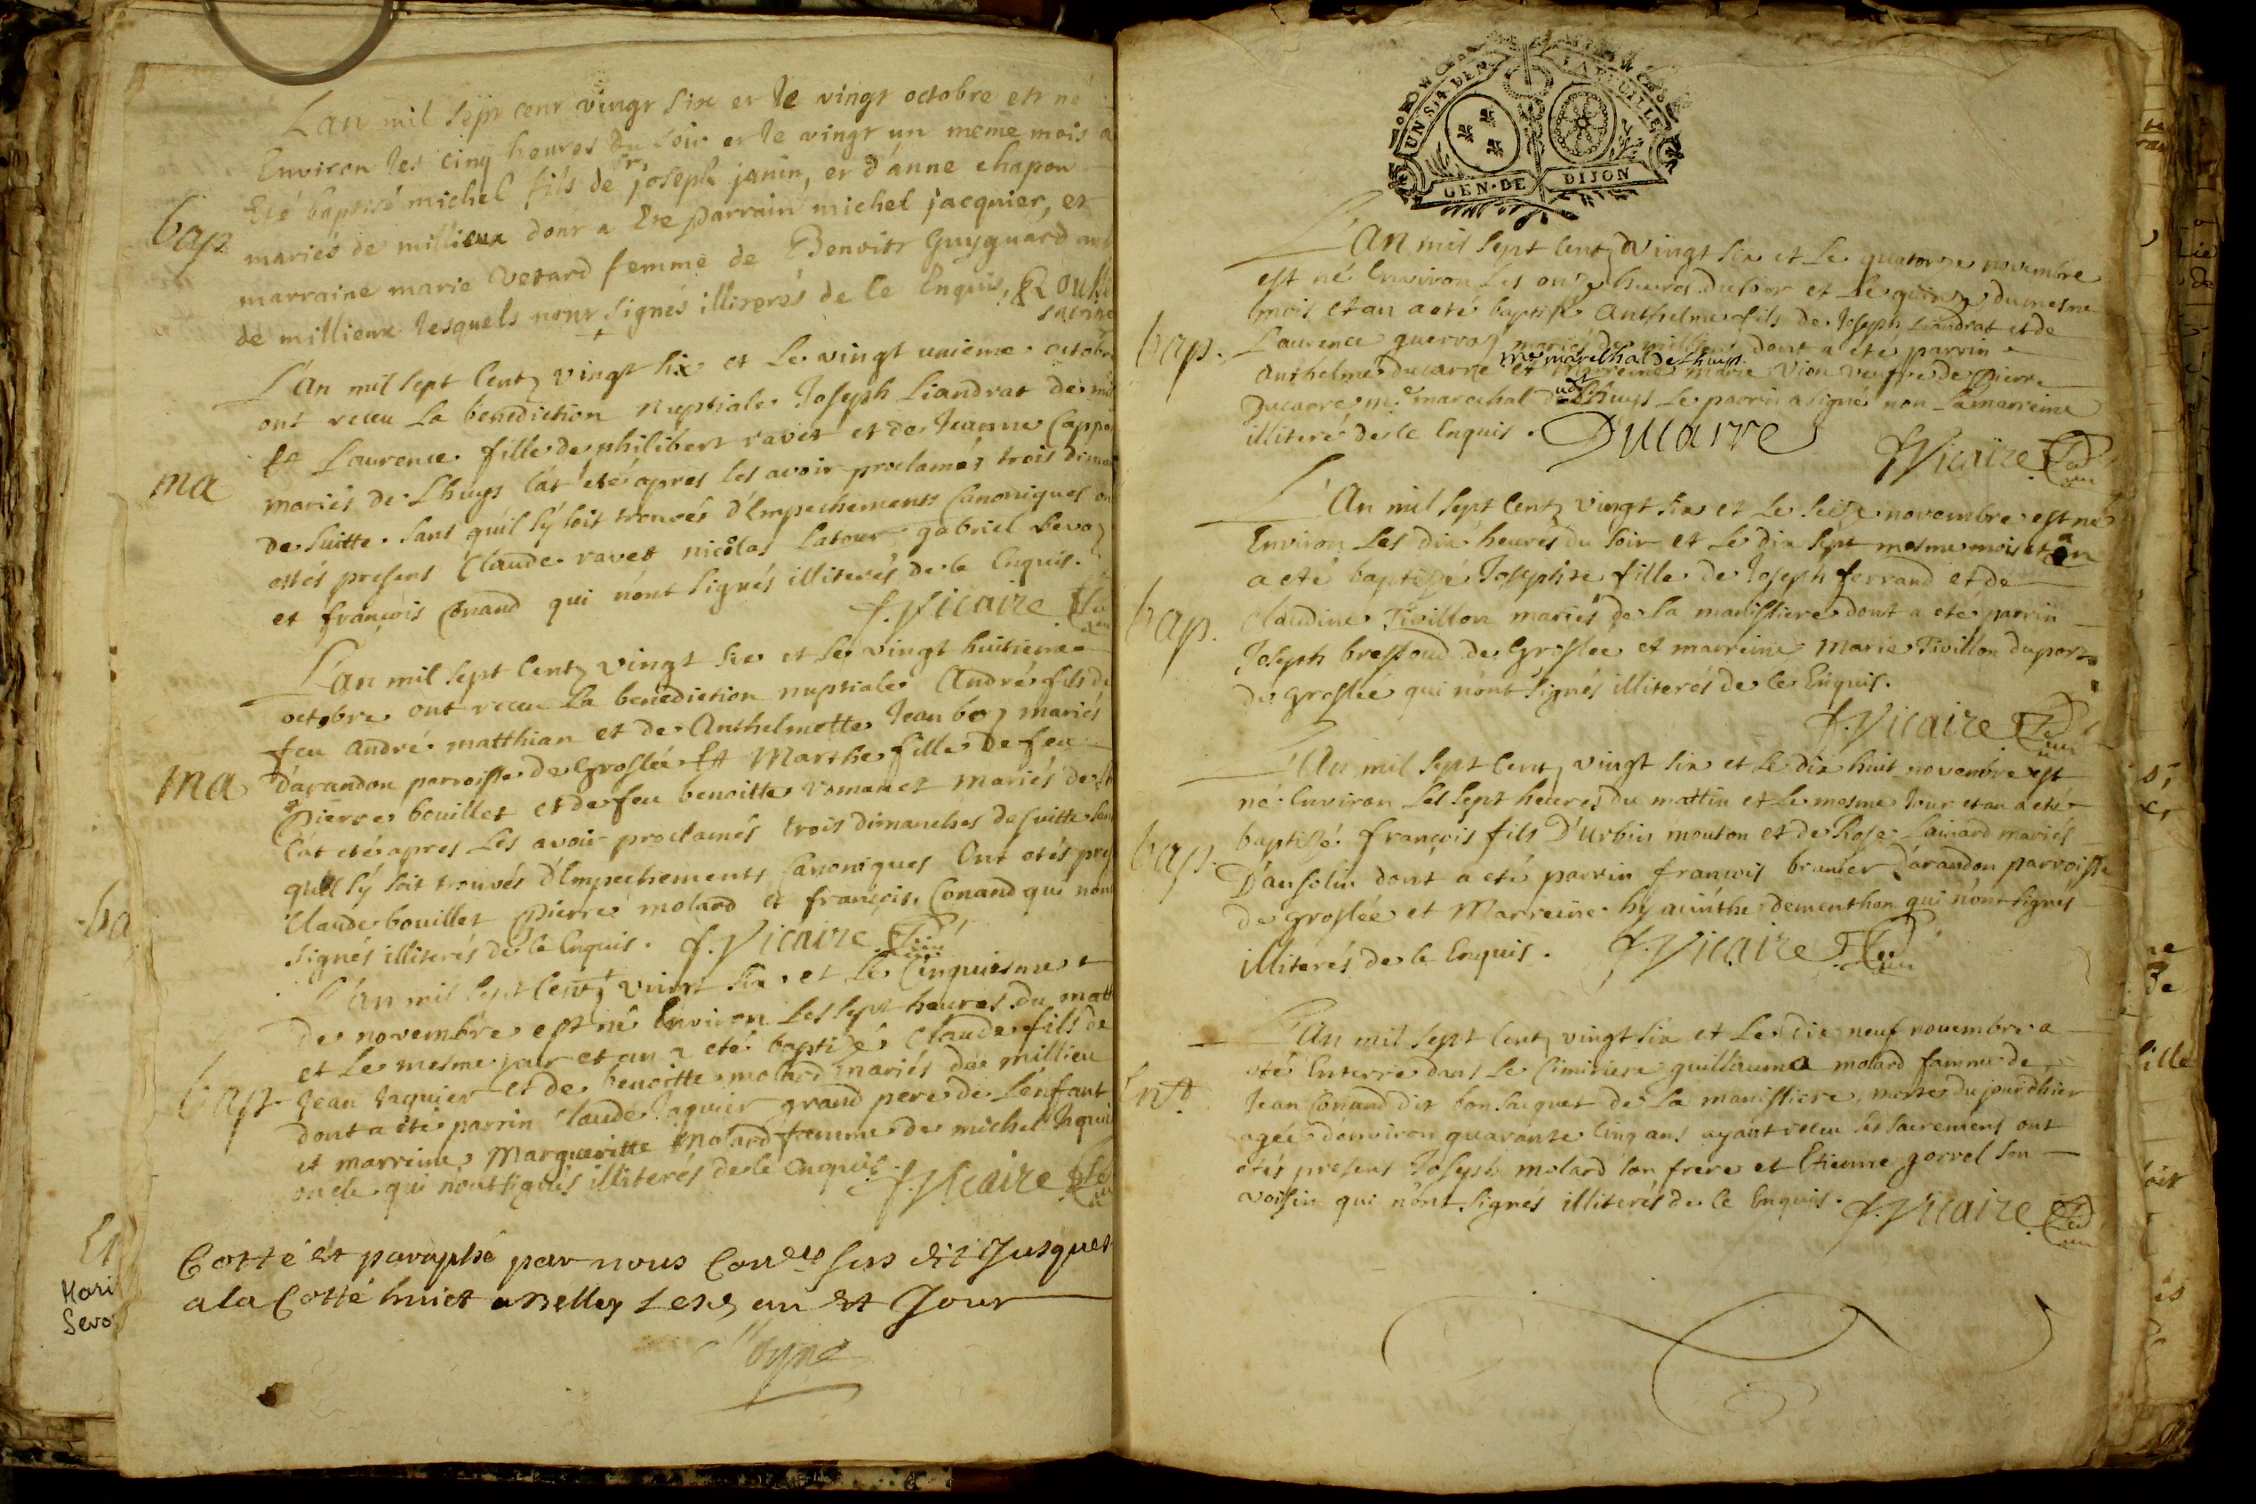 L'an mil sept cent vingt six et le vingt octobre est né
Environ les cinq heures du soir et le vingt un meme mois a
Eté baptisé michel fils de sr, joseph janin, et d'anne chapon
bap
mariés de millieux dont a Ete parrain michel jacquier, et
marraine marie vetard femme de Benoitt Guyguard
de millieux lesquels n'ont signés illiterés de ce Enquis,
L'An mil sept Cent vingt six et Le vingt unieme octobre
ont receu La benediction nuptiale Joseph Liandrat de
Et Laurence fille de philibert ravet et de Jeanne
ma
mariés de Lhuys C'at eté apres les avoir proclamés trois
de suitte sans quil s'y soit trouvés d'Empechements Canoniques
estés presens Claude ravet nicolas Latour gabriel
et françois Conand qui n'ont signés illiterés de ce Enquis.
f. Vicaire
L'An mil sept Cent vingt six et Le vingt huitieme
octobre ont receu La benediction nuptiale André fils de
feu André matthian et de Anthelmette Jean boz mariés
D'arandon parroisse de Groslée Et Marthe fille De feu
ma
Pierre bouillet et de feu benoitte romanet mariés de
C'at eté apres Les avoir proclamés trois dimanches de suitte
quil s'y soit trouvés d'Empechements Canoniques Ont etés
Claude bouillet Pierre molard et françois Conand qui n'ont
signés illiterés de ce Enquis. f. Vicaire
L'An mil sept Cent vingt six et Le Cinquiesme
de novembre est né Environ Les sept heures du
et Le mesme jour et an a eté baptizé Claude fils de
bap
Jean Jaquier et de benoitte molard mariés de millieu
dont a eté parrin Claude Jaquier grand pere de L'enfant
et marreine Margueritte Molard femme de michel
oncle qui n'ont signés illiterés de ce Enquis.
f. Vicaire
Cotté Et paraphé par nous sus dit Jusques
a la Cotté huict a Belley Les an Et Jour
UN S. 4 DEN. LA FEUILLE
GEN. DE DIJON
L'An mil sept Cent Vingt six et Le quatorze novembre
est né Environ Les onze heures du soir et Le quinze du mesme
mois et an a eté baptisé Anthelme fils de Joseph Liandrat et de
bap.
Laurence mariés de millieu dont a eté parrin
me marechal de Lhuys
Anthelme Ducarre et Marreine marie Vion veufve de Pierre
Ducarre me marechal de Lhuys Le parrin a signé non La marreine
illiteré de ce Enquis. Ducarre
f. Vicaire
L'An mil sept Cent vingt six et Le seize novembre est né
Environ Les dix heures du soir et Le dix sept mesme mois et an
a eté baptizé Josephte fille de Joseph ferrand et de
bap.
Claudine Tivillon mariés de La manissiere dont a eté parrin
Joseph bressoud de Groslee et marreine Marie Tivillon du port
de Groslée qui n'ont signés illiterés de ce Enquis.
f. Vicaire
L'An mil sept Cent vingt six et Le dix huit novembre est
né Environ Les sept heures du mattin et Le mesme Jour et an a eté
bap.
baptizé françois fils D'urbin mouton et de Rose mariés
D'ansolin dont a eté parrin françois D'arandon parroisse
de Groslée et Marreine hyacinthe dementhon qui n'ont signés
illiterés de ce Enquis. f. Vicaire
L'An mil sept Cent vingt six et Le dix neuf novembre a
Ent.
eté Enterré dans Le Cimitiere guillauma molard famme de
Jean Conand dit bon Jacquet de La manissiere, morte du jourdhier
agée denviron quarante Cinq ans ayant receu ses sacremens ont
etés presens Joseph molard son frere et Etienne gorrel son
voisin qui n'ont signés illiterés de ce Enquis. f. Vicaire